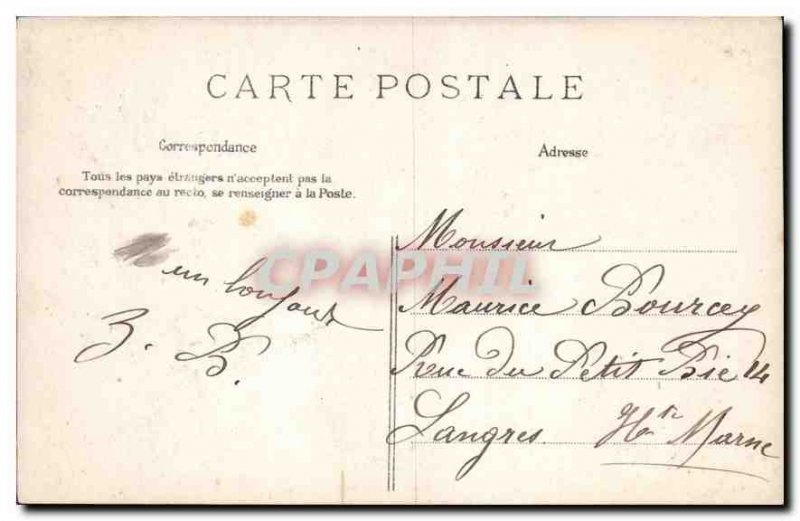 CARTE POSTALE
Correspondance
Tous les pays étrangers n'acceptent pas la
correspondance au recto, se renseigner à la Poste.
un bonjour
B.
Adresse
Monsieur
Maurice Bourcey
Rue du Petit Bie 14
Langres. Hte Marne
CPAPHIL